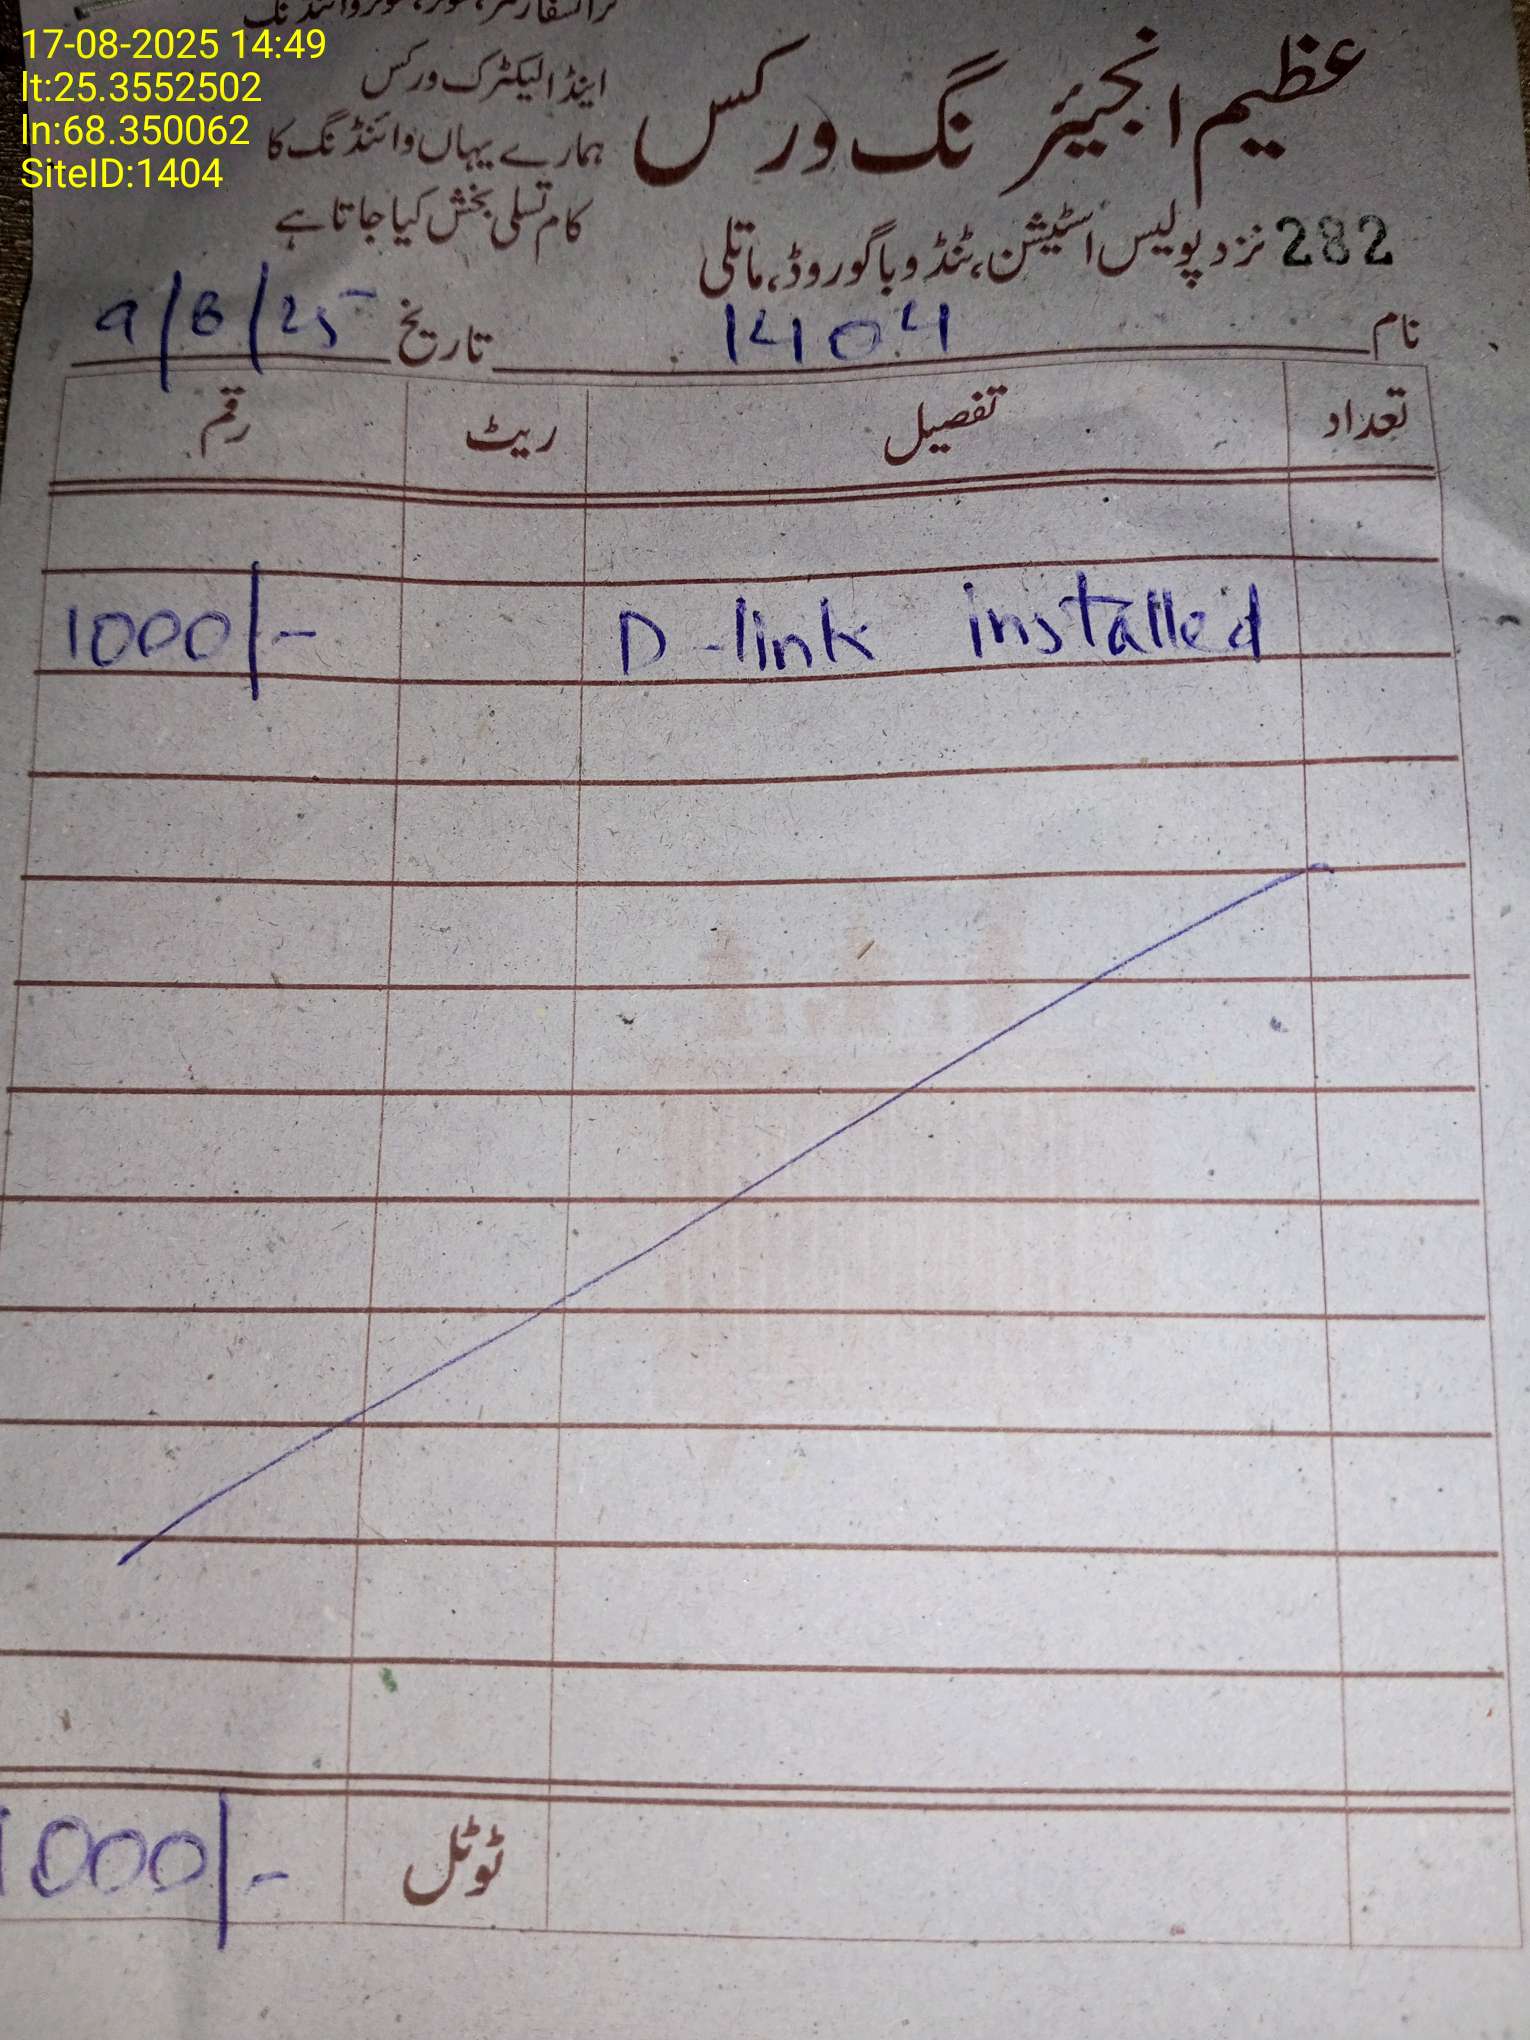 17-08-2025 14:49
lt:25.3552502
ln:68.350062
SiteID:1404
عظیم انجیئرنگ ورکس
اینڈ الیکٹرک ورکس
ہمارے یہاں وائنڈنگ کا
کام تسلی بخش کیا جاتا ہے
282 نزد پولیس اسٹیشن، ٹنڈو باگو روڈ، ماتلی
نام 1404 تاریخ 9/8/25
تعداد تفصیل ریٹ رقم
D-link installed 1000/-
ٹوٹل 1000/-